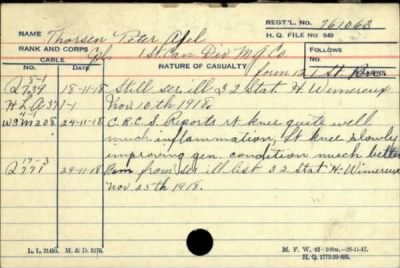 REGT'L. No. 761063
H. Q. FILE No. 649
NAME Thorsen Peter Apel
RANK AND CORPS Cpl. 1st Can Div M.G Co.
FOLLOWS
No.
CABLE
No. DATE
NATURE OF CASUALTY
FOLLOWS
form 12.1
5-1
Q739 18-11-18 Still ser. ill 32 Stat H. Wimereux
H.L.A37 1-1 Nov. 10th 1918.
4-1
W3M208 24-11-18 C.R.C.S. Reports rt knee quite well
much inflammation, lt knee slowly
improving gen. condition much better
17-3
Q771 29-11-18 Rem from ser ill list 32 Stat H. Wimereux
Nov. 25th 1918.
L. L. 31460. M. & D. 8476.
M. F. W. 42-100m.-28-11-17.
H. Q. 1772-39-893.